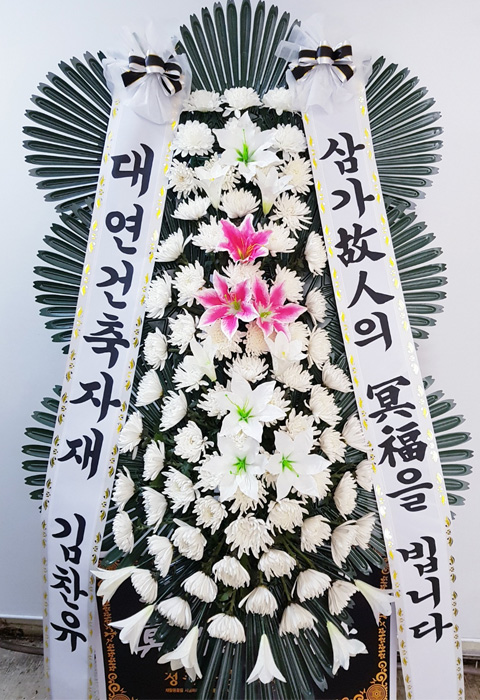 삼가故人의 冥福을 빕니다
대연건축자재 김찬유